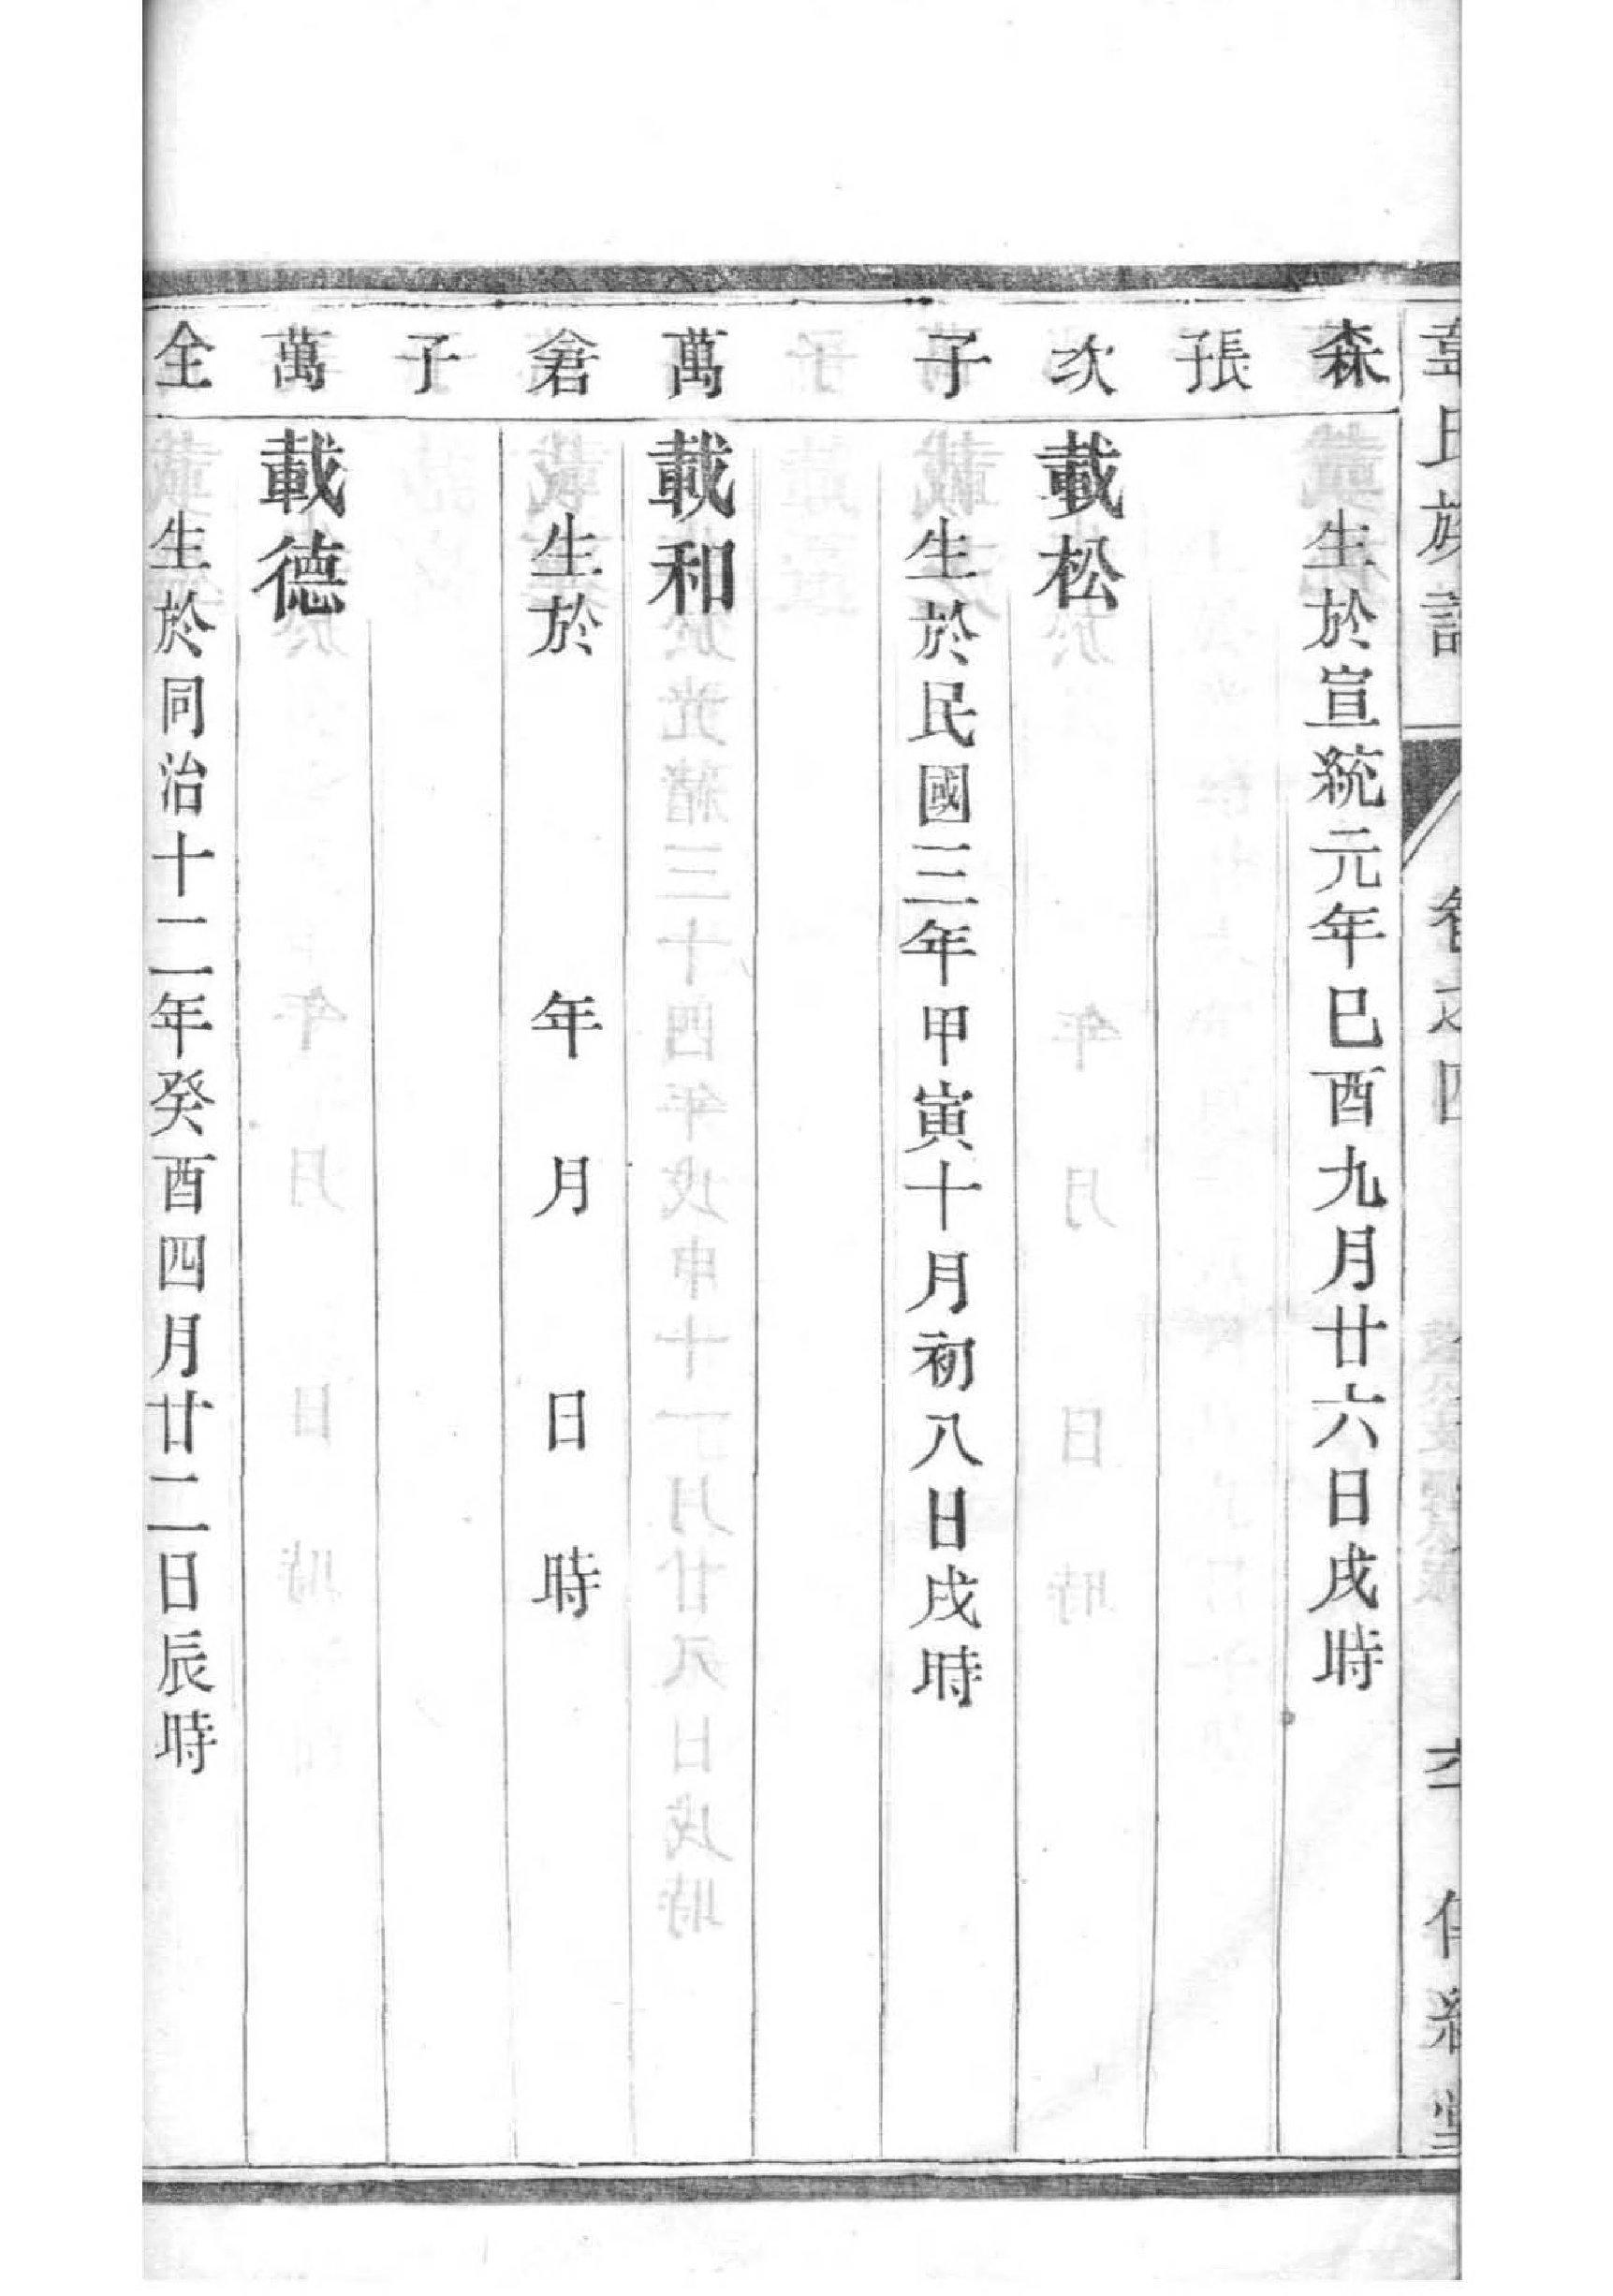 韋氏族譜 卷之四
森 生於宣統元年巳酉九月廿六日戌時
張子
次 載松
子 生於民國三年甲寅十月初八日戌時
萬 載和
倉 生於 年 月 日 時
子
萬 載德
全 生於同治十二年癸酉四月廿二日辰時